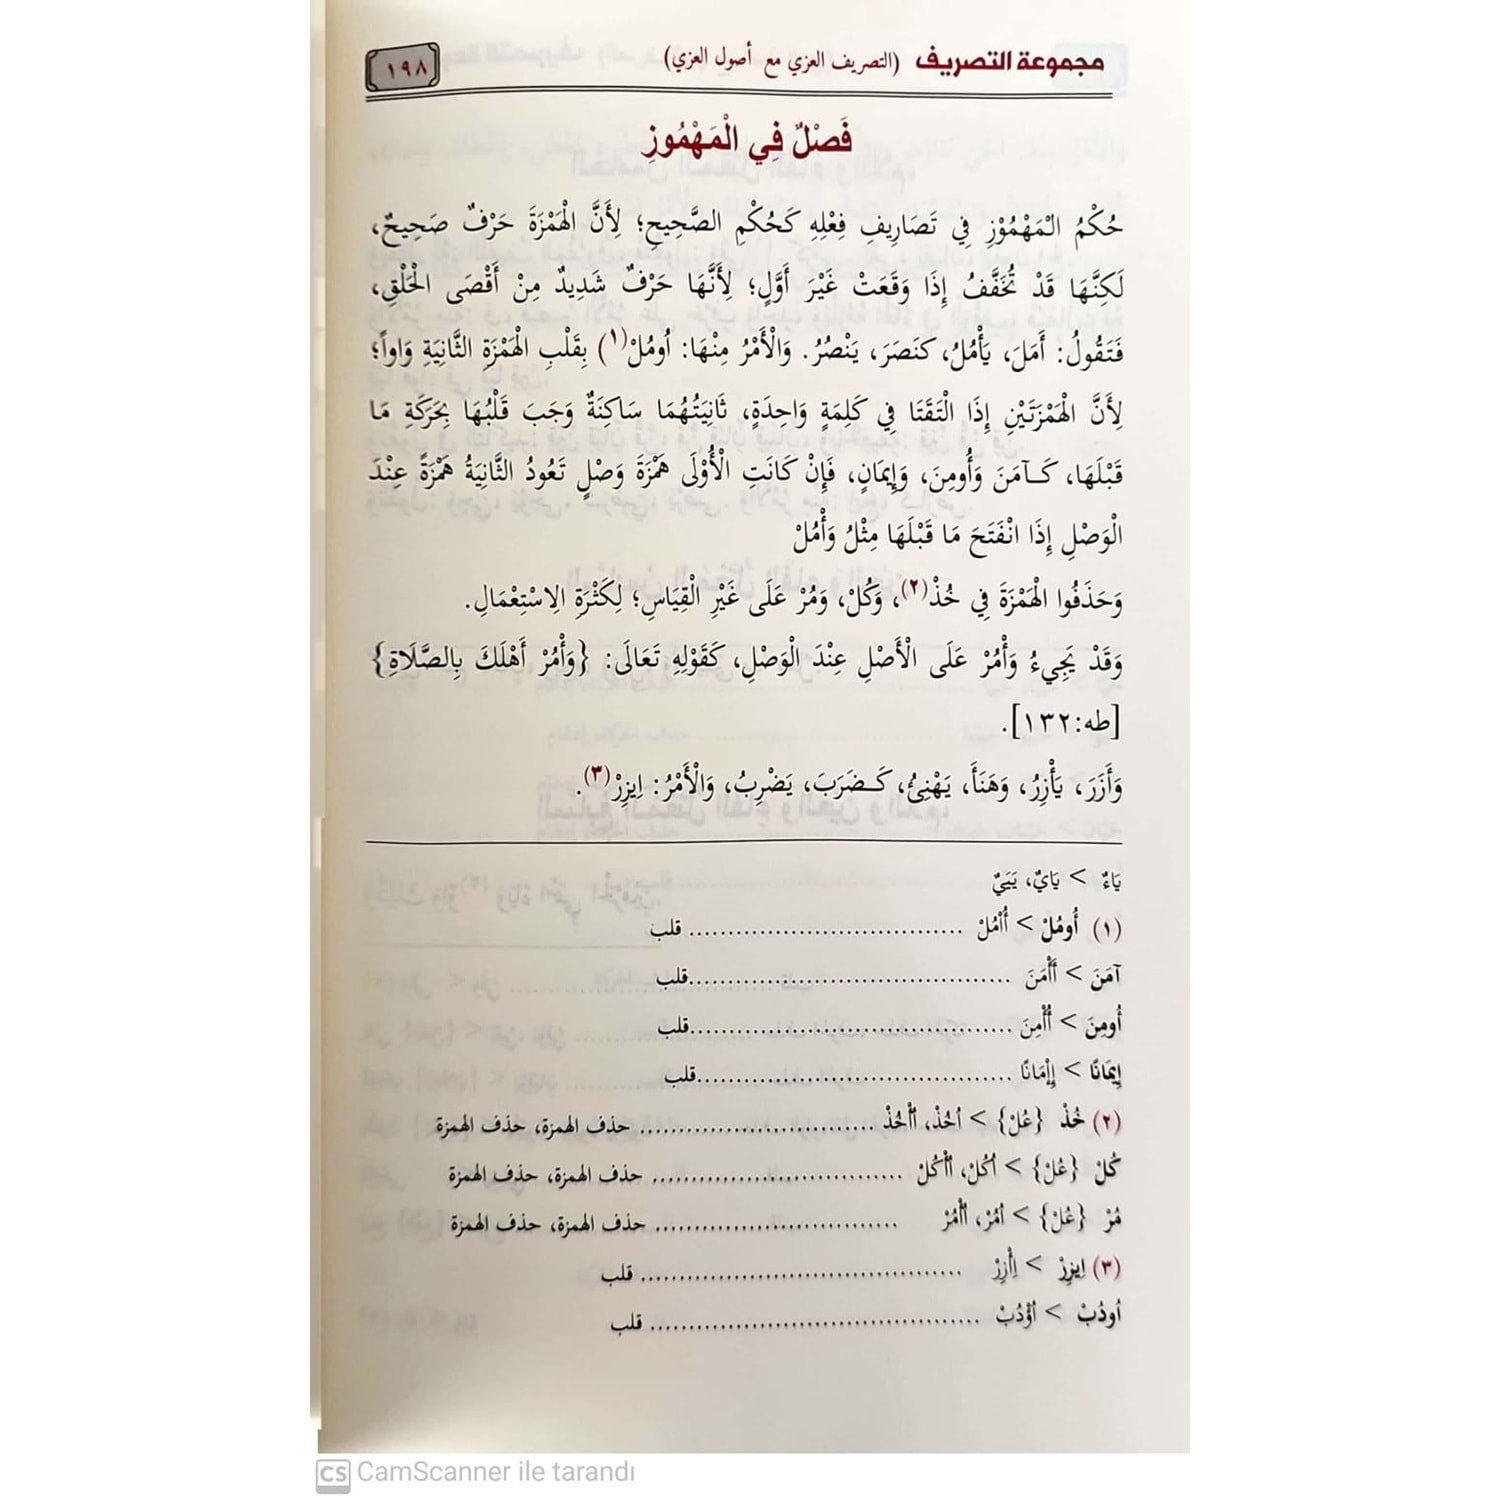 مجموعة التصريف (التصريف العزي مع أصول العزي) ١٩٨
فَصْلٌ فِي الْمَهْمُوزِ
حُكْمُ الْمَهْمُوْزِ فِي تَصَارِيفِ فِعْلِهِ كَحُكْمِ الصَّحِيحِ؛ لِأَنَّ الْهَمْزَةَ حَرْفٌ صَحِيحٌ،
لَكِنَّهَا قَدْ تُخَفَّفُ إِذَا وَقَعَتْ غَيْرَ أَوَّلٍ؛ لِأَنَّهَا حَرْفٌ شَدِيدٌ مِنْ أَقْصَى الْحَلْقِ،
فَتَقُولُ: أَمَلَ، يَأْمُلُ، كَنَصَرَ، يَنْصُرُ. وَالْأَمْرُ مِنْهَا: اُومُلْ(١) بِقَلْبِ الْهَمْزَةِ الثَّانِيَةِ وَاواً؛
لِأَنَّ الْهَمْزَتَيْنِ إِذَا الْتَقَتَا فِي كَلِمَةٍ وَاحِدَةٍ، ثَانِيَتُهُمَا سَاكِنَةٌ وَجَبَ قَلْبُهَا بِحَرَكَةِ مَا
قَبْلَهَا، كَـآمَنَ وَأُومِنَ، وَإِيمَانٍ، فَإِنْ كَانَتِ الْأُوْلَى هَمْزَةَ وَصْلٍ تَعُودُ الثَّانِيَةُ هَمْزَةً عِنْدَ
الْوَصْلِ إِذَا انْفَتَحَ مَا قَبْلَهَا مِثْلُ وَأْمُلْ
وَحَذَفُوا الْهَمْزَةَ فِي خُذْ(٢)، وَكُلْ، وَمُرْ عَلَى غَيْرِ الْقِيَاسِ؛ لِكَثْرَةِ الِاسْتِعْمَالِ.
وَقَدْ يَجِيءُ وَأْمُرْ عَلَى الْأَصْلِ عِنْدَ الْوَصْلِ، كَقَوْلِهِ تَعَالَى: {وَأْمُرْ أَهْلَكَ بِالصَّلَاةِ}
[طه:١٣٢].
وَأَزَرَ، يَأْزِرُ، وَهَنَأَ، يَهْنِئُ، كَـضَرَبَ، يَضْرِبُ، وَالْأَمْرُ: اِيزِرْ(٣).
يَاءٌ > يَايٌ، يَيَيٌ
(١) أُومُلْ > أُأْمُلْ ................................... قلب
آمَنَ > أَأْمَنَ .........................................قلب
أُومِنَ > أُأْمِنَ .........................................قلب
إِيمَانًا > إِإْمَانًا .........................................قلب
(٢) خُذْ {عُلْ} > اُخُذْ، اُأْخُذْ .............................. حذف الهمزة، حذف الهمزة
كُلْ {عُلْ} > اُكُلْ، اُأْكُلْ ................................ حذف الهمزة، حذف الهمزة
مُرْ {عُلْ} > اُمُرْ، اُأْمُرْ ............................... حذف الهمزة، حذف الهمزة
(٣) اِيزِرْ > اِأْزِرْ ......................................... قلب
اُودُبْ > اُؤْدُبْ .......................................... قلب
CS CamScanner ile tarandı